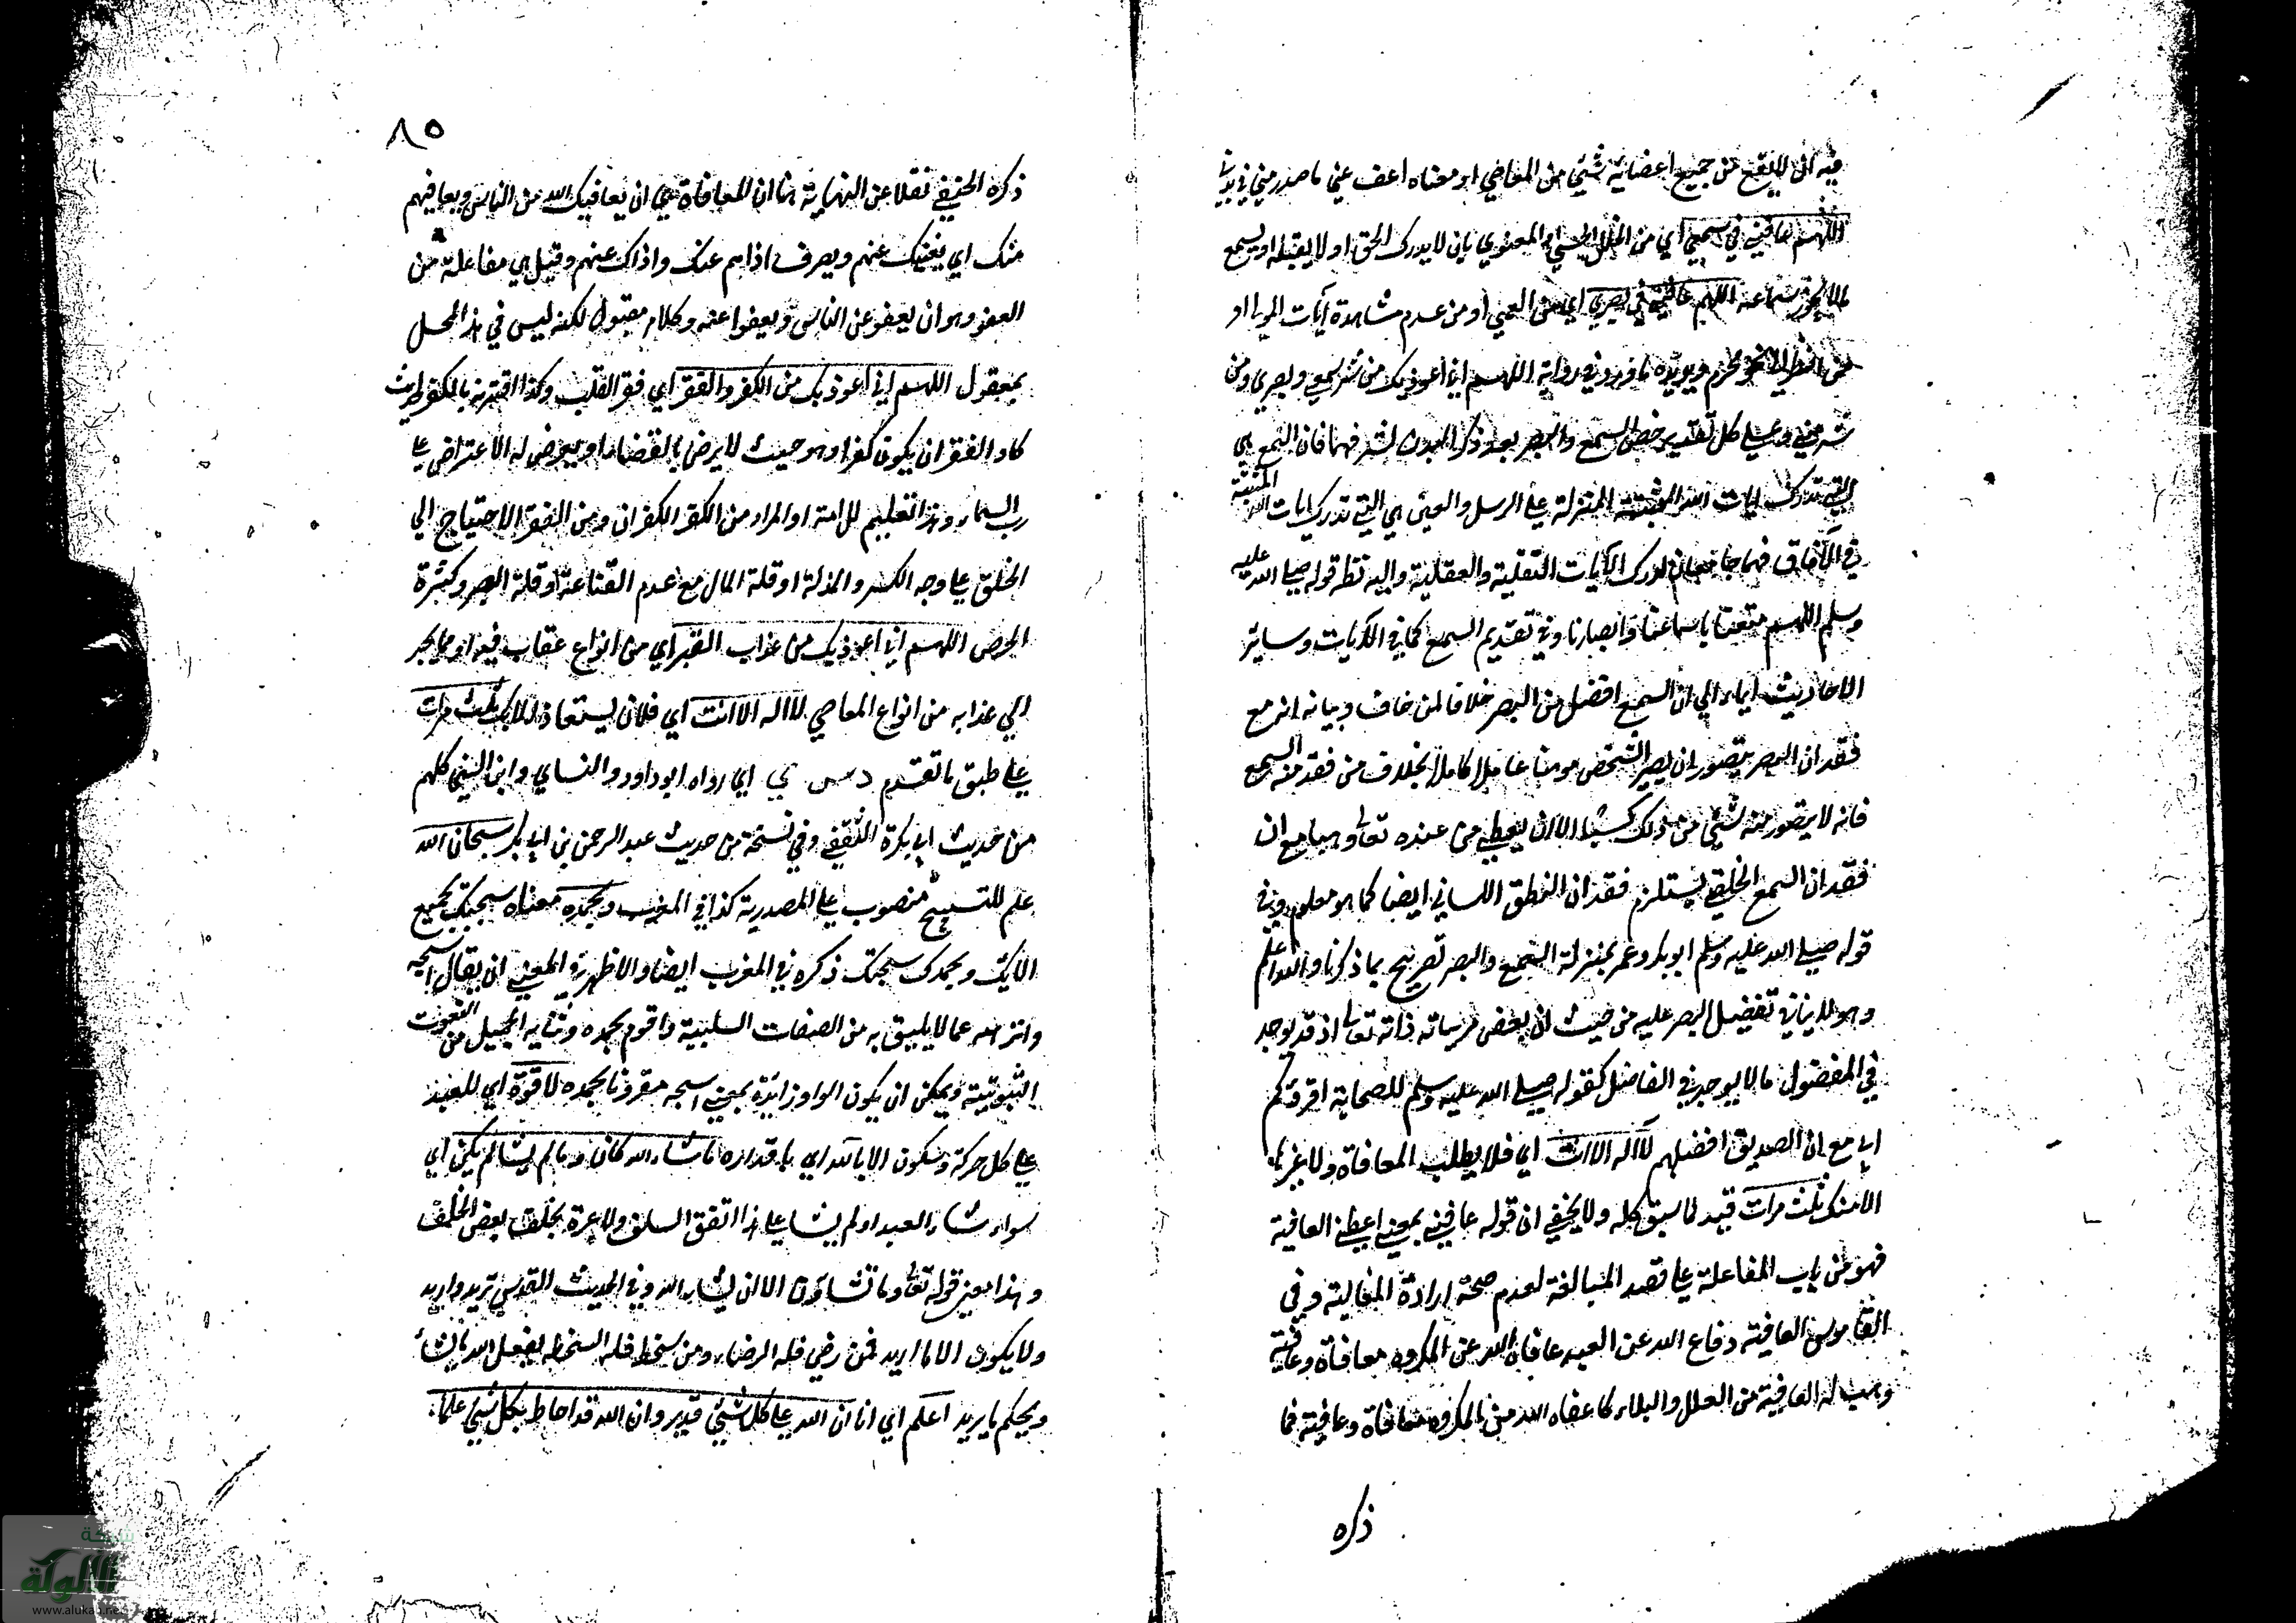 فيه اي لايقع من جميع اعضائي شيئ من المعاصي او معناه اعف عني ما صدر مني في بدني
اللهم عافني في سمعي اي من الخلل الحسي او المعنوي بان لا يدرك الحق او لا يقبله او يسمع
ما لا يجوز سماعه اللهم عافني في بصري اي من العمي او من عدم مشاهدة آيات المولي او
من النظر الي نحو محرم ويؤيده ما ورد في رواية اللهم اني اعوذ بك من شر سمعي وبصري ومن
شر منيي وعلي كل تقدير خص السمع والبصر بعد ذكر البدن لشرفهما فان السمع هي
التي تدرك ايات الله المنزلة علي الرسل والعين هي التي تدرك ايات الله المثبتة
في الآفاق فهما جامعان لدرك الآيات النقلية والعقلية واليه نظر قوله صلي الله عليه
وسلم اللهم متعنا باسماعنا وابصارنا وفي تقديم السمع كما في الآيات وساير
الاحاديث ايماء الي ان السمع افضل من البصر خلافا لمن خالف وبيانه انه مع
فقدان البصر يتصور ان يصير الشخص مومنا عاملا كاملا بخلاف من فقد منه السمع
فانه لا يتصور منه شيئ من ذلك كسبا الا ان يعطي من عنده تعالي وهبا مع ان
فقدان السمع الخلقي يستلزم فقدان النطق اللساني ايضا كما هو معلوم وفي
قوله صلي الله عليه وسلم ابو بكر وعمر بمنزلة السمع والبصر تصريح بما ذكرنا والله اعلم
وهو لا ينافي تفضيل البصر عليه من حيث ان بعض مرئياته ذاته تعالي اذ قد يوجد
في المفضول ما لا يوجد في الفاضل كقوله صلي الله عليه وسلم للصحابة اقرؤكم
ابي مع ان الصديق افضلهم لا اله الا انت اي فلا يطلب المعافاة ولا غيرها
الا منك ثلث مرات قيد لما سبق كله ولا يخفي ان قوله عافني بمعني اعطني العافية
فهو من باب المفاعلة علي قصد المبالغة لعدم صحة ارادة المغالبة وفي
القاموس العافية دفاع الله عن العبد عافاه الله عن المكروه معافاة وعافية
وهب له العافية من العلل والبلاء كاعفاه الله من المكروه معافاة وعافية فما
ذكره
٨٥
ذكره الحنفي نقلا عن النهاية هنا ان المعافاة هي ان يعافيك الله من الناس ويعافيهم
منك اي يغنيك عنهم ويصرف اذاهم عنك واذاك عنهم وقيل هي مفاعلة من
العفو وهو ان يعفو عن الناس ويعفوا عنه وكلام مقبول لكنه ليس في هذا المحل
بمعقول اللهم اني اعوذ بك من الكفر والفقر اي فقر القلب وكذا اقترنه بالكفر لحديث
كاد الفقر ان يكون كفرا وهو حيث لا يرضي بالقضاء او يعرض له الاعتراض علي
رب السماء وهذا تعليم للامة او المراد من الكفر الكفران ومن الفقر الاحتياج الي
الخلق علي وجه الكسر والمذلة او قلة المال مع عدم القناعة او قلة الصبر وكثرة
الحرص اللهم اني اعوذ بك من عذاب القبر اي من انواع عقاب فيه او مما يجر
الي عذابه من انواع المعاصي لا اله الا انت اي فلا يستعاذ الا بك ثلث مرات
علي طبق ما تقدم د س ي اي رواه ابو داود والنساي وابن السني كلهم
من حديث ابي بكرة الثقفي وفي نسخة من حديث عبد الرحمن بن ابي بكر سبحان الله
علم للتسبيح منصوب علي المصدرية كذا في المغرب وبحمده معناه سبحتك بجميع
الايك وبحمدك سبحتك ذكره في المغرب ايضا والاظهر في المعني ان يقال اسبحه
وانزهه عما لا يليق به من الصفات السلبية واقوم بحمده وثنايه الجميل من النعوت
الثبوتية ويمكن ان يكون الواو زايدة بمعني اسبحه مقرونا بحمده لا قوة اي للعبد
علي كل حركة وسكون الا بالله اي باقداره ما شاء الله كان وما لم يشا لم يكن اي
سواء شاء العبد او لم يشا علي هذا اتفق السلف ولا عبرة بخلف بعض الخلف
وهذا معني قوله تعالي وما تشاؤن الا ان يشاء الله وفي الحديث القدسي تريد واريد
ولا يكون الا ما اريد فمن رضي فله الرضاء ومن سخط فله السخط يفعل الله ما يشاء
ويحكم ما يريد اعلم اي انا ان الله علي كل شيئ قدير وان الله قد احاط بكل شيئ علما
شبكة
الألوكة
www.alukah.net